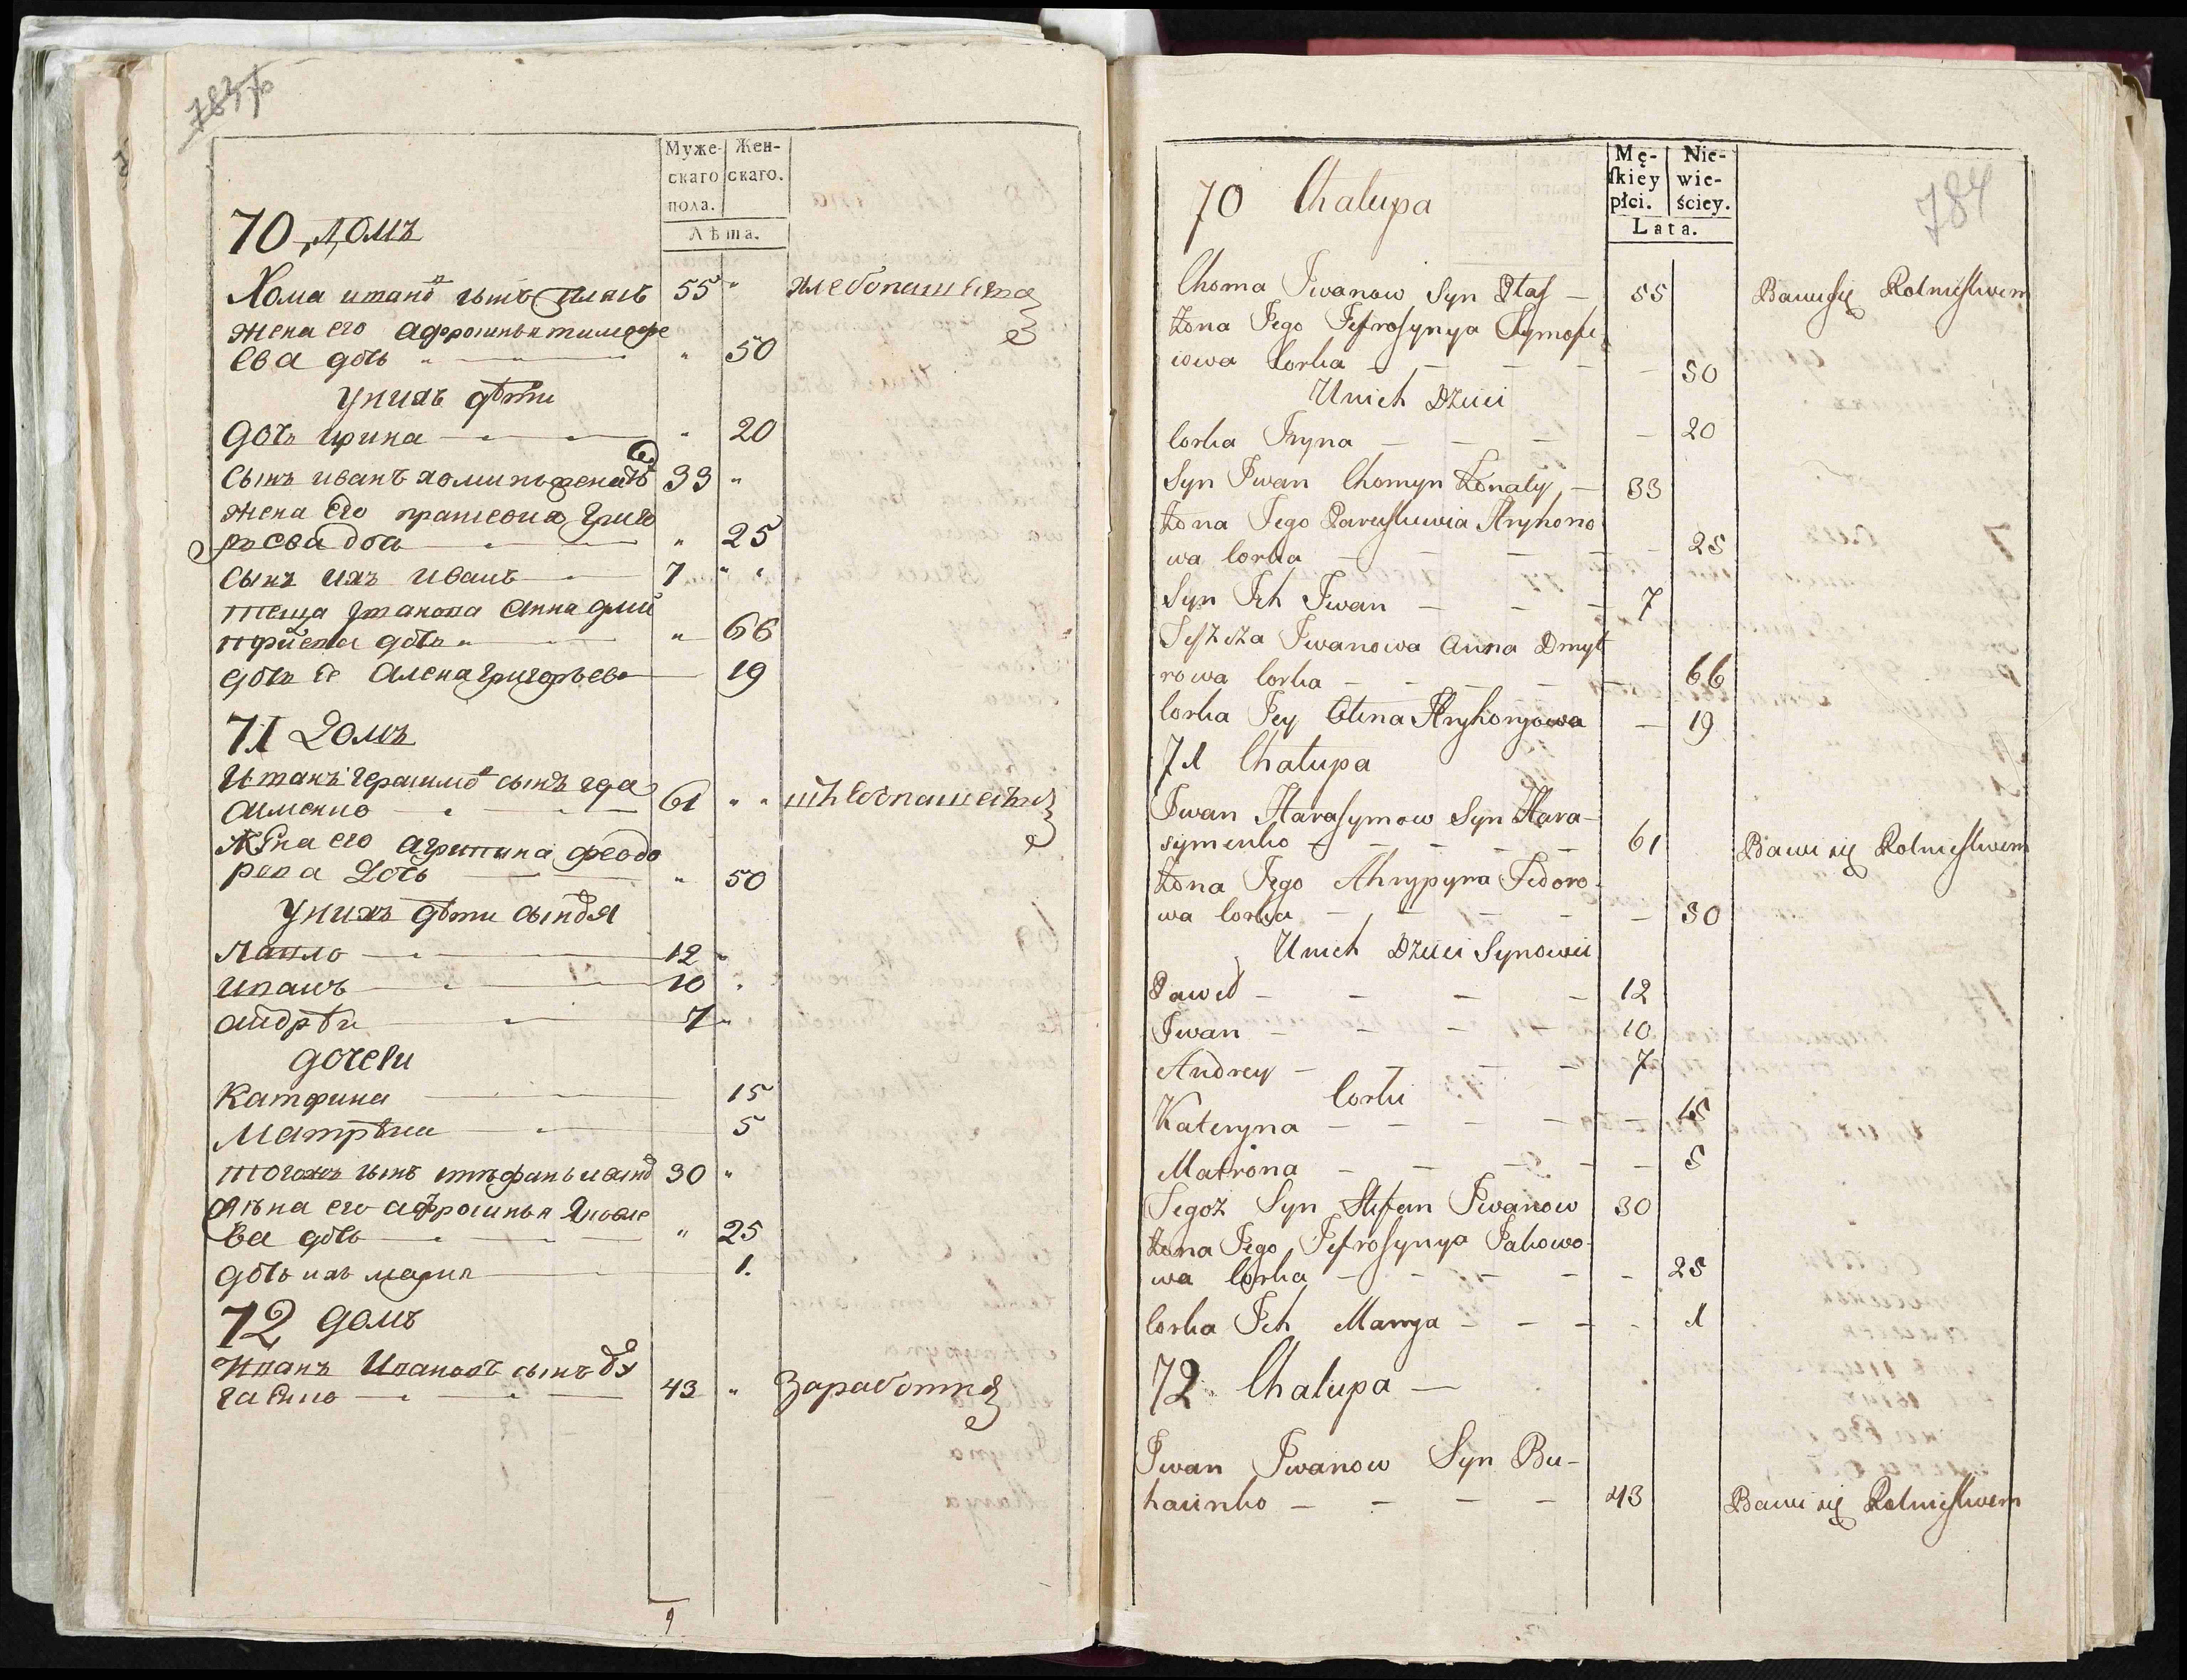 783 об
Муже- Жен-
скаго скаго.
пола.
Лѣта.
70 домъ
Хома ивановъ сынъ 55 " хлебопашество
жена его афросинья тимофе
ева дочь " 50
у них дѣти
дочь ирина " 20
сынъ иванъ хоминъ женатъ 33 "
жена его прасковия григо
рьева дочь " 25
сынъ ихъ иванъ 7 " "
теща иванова анна дми
трієва дочь " 66
дочь ее алена григорьева 19
71 домъ
иванъ герасимовъ сынъ гера
сименко 61 " " хлебопашество
жена его агрипина феодо
рова дочь " 50
у нихъ дѣти сыновя
павло 12 "
иванъ 10 "
андрѣй 7 "
дочери
катерина 15
матрѣна 5
тогожъ сынъ стефанъ ивановъ 30 "
жена его афросинья яковле
ва дочь " 25
дочь ихъ мария 1.
72 домъ
Иванъ Ивановъ сынъ бу
гаенко 43 " заработкою
784
Mę- Nie-
skiey wie-
płci. ściey.
Lata.
70 Chałupa
Choma Iwanow Syn Ptas — 55 Bawi się Rolnictwem
Żona Jego Jefrosynya Tymofi
iowa Corka — — — — 50
U nich Dzieci
Corka Iryna — — — — 20
Syn Iwan Chomyn Żonaty — 33
Żona Jego Paraskiewia Hryhoro
wa Corka — — — — 25
Syn Ich Iwan — — — 7
Teszcza Iwanowa Anna Dmyt
rowa Corka — — — — 66
Corka Jey Olena Hryhoryowa — 19
71 Chałupa
Iwan Harasymow Syn Hara-
symenko — — — — 61 Bawi się Rolnictwem
Żona Jego Ahrypyna Fedoro-
wa Corka — — — — 50
U nich Dzieci Synowie
Paweł — — — — 12
Iwan — — — — 10
Andrey — — — — 7
Corki
Kateryna — — — — — 15
Matrona — — — — — 5
Tegoż Syn Stefan Iwanow 30
Żona Jego Jefrosynya Jakowo-
wa Corka — — — — — 25
Corka Ich Marya — — — — 1
72 Chałupa —
Iwan Iwanow Syn Bu-
haienko — — — — 43 Bawi się Rolnictwem